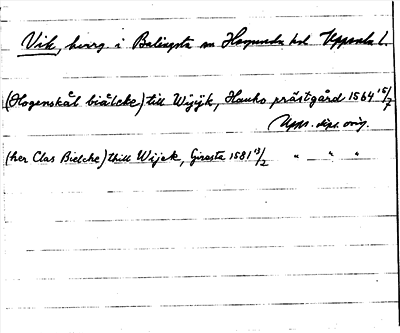 Vik, herrg. i Balingsta sn Hagunda hd Uppsala l.
(Hogenskål biälcke) till Wijk, Hauho prästgård 1564 15/7
Upps. dipl. orig.
(her Clas Bielcke) thill Wijek, Giresta 1581 13/2 " — " "